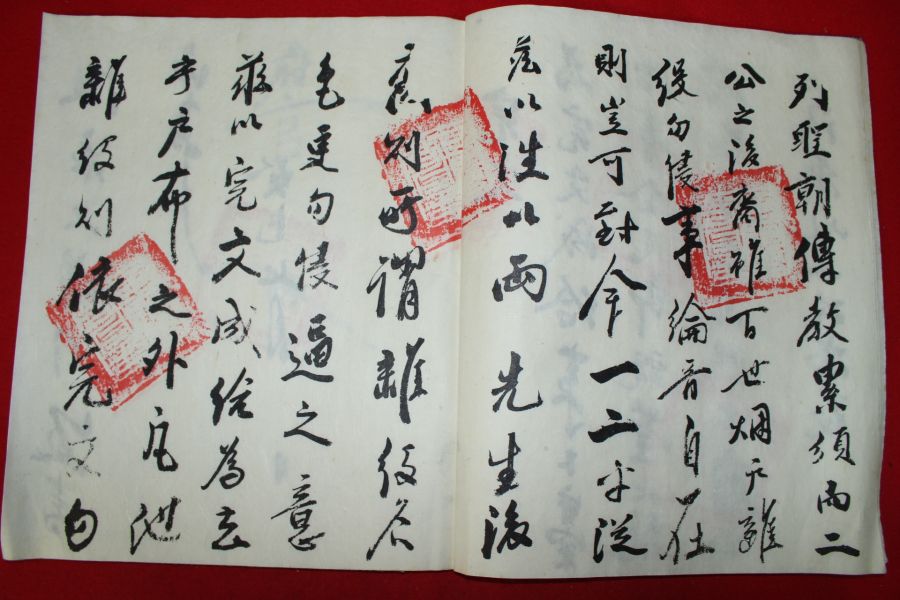 列聖朝傳教累頒而二
公之後裔雖百世烟戶雜
役勿侵事綸音自在
則豈可今一二乎從
玆以往以兩先生後
裔則所謂雜役各
色更勿侵逼之意
玆以完文成給爲去
乎戶布之外凡他
雜役則依完文勿